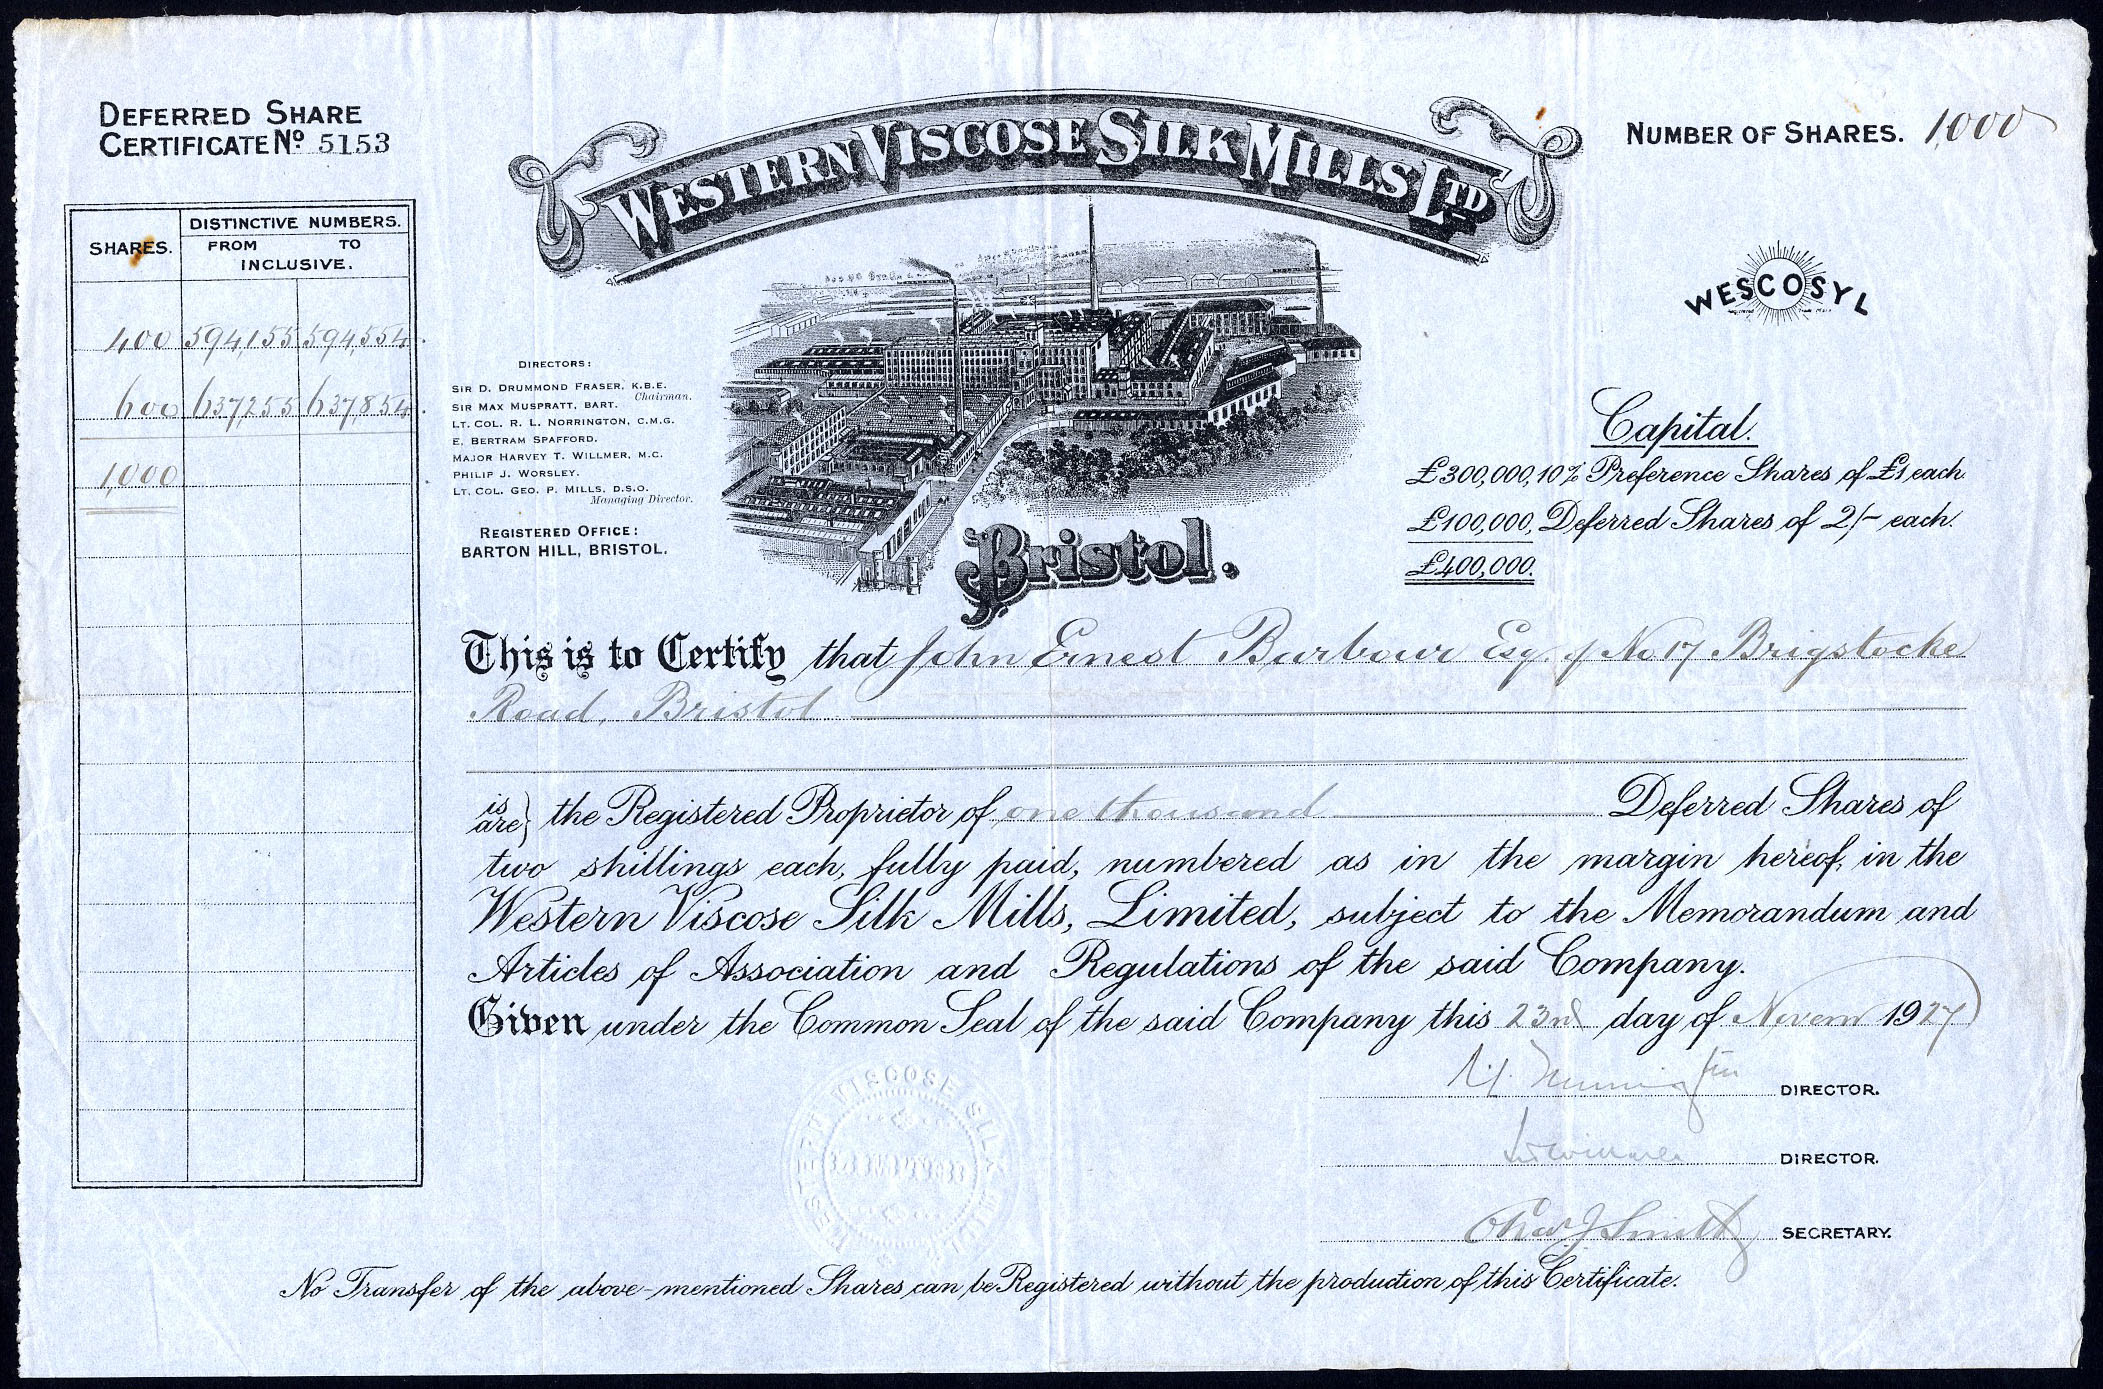 DEFERRED SHARE
CERTIFICATE Nº 5153
WESTERN VISCOSE SILK MILLS LTD
NUMBER OF SHARES. 1,000
SHARES. DISTINCTIVE NUMBERS.
FROM TO
INCLUSIVE.
400 594,155 594,554
600 637,255 637,854
1,000
WESCOSYL
DIRECTORS:
SIR D. DRUMMOND FRASER, K.B.E.
Chairman.
SIR MAX MUSPRATT, BART.
LT. COL. R. L. NORRINGTON, C.M.G.
E. BERTRAM SPAFFORD.
MAJOR HARVEY T. WILLMER, M.C.
PHILIP J. WORSLEY.
LT. COL. GEO. P. MILLS, D.S.O.
Managing Director.
REGISTERED OFFICE:
BARTON HILL, BRISTOL.
Bristol.
Capital.
£300,000, 10% Preference Shares of £1 each.
£100,000, Deferred Shares of 2/- each.
£400,000.
This is to Certify that John Ernest Barbour Esq. of No 17 Brigstocke
Road, Bristol
is
are } the Registered Proprietor of one thousand Deferred Shares of
two shillings each, fully paid, numbered as in the margin hereof, in the
Western Viscose Silk Mills, Limited, subject to the Memorandum and
Articles of Association and Regulations of the said Company.
Given under the Common Seal of the said Company this 23rd day of Novem 1927
DIRECTOR.
DIRECTOR.
Chas J Smith SECRETARY.
WESTERN VISCOSE SILK MILLS
LIMITED
No Transfer of the above-mentioned Shares can be Registered without the production of this Certificate.